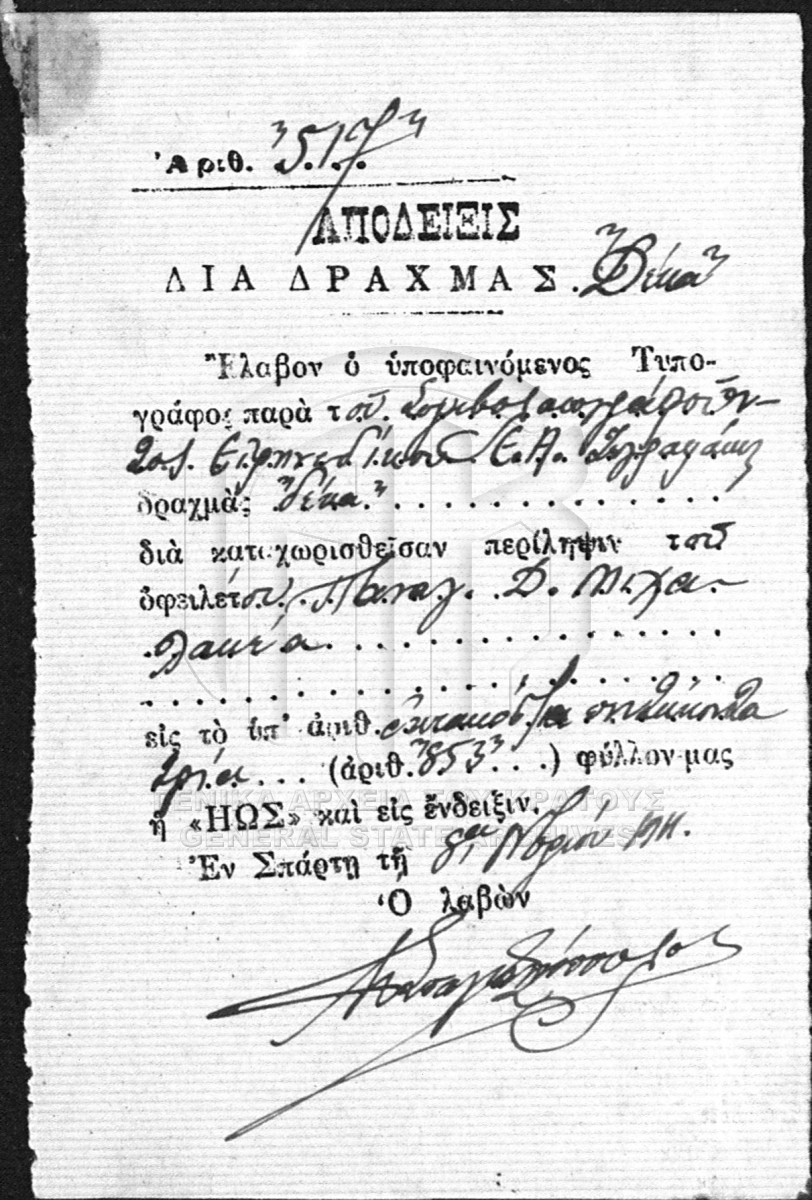 Ἀριθ. "517"
ΑΠΟΔΕΙΞΙΣ
ΔΙΑ ΔΡΑΧΜΑΣ. "Δέκα"
Ἔλαβον ὁ ὑποφαινόμενος Τυπο-
γράφος παρὰ τοῦ Συμβολαιογραφοῦν-
τος Εἰρηνοδίκου Ε. Α.
δραχμὰς "δέκα"
διὰ καταχωρισθεῖσαν περίληψιν τοῦ
ὀφειλέτου Παναγ. Δ. Μιχα-
λακέα
εἰς τὸ ὑπ' ἀριθ. ὀκτακόσια πεντήκοντα
τρία ... (ἀριθ. "853" ...) φύλλον μας
ἡ «ΗΩΣ» καὶ εἰς ἔνδειξιν.
Ἐν Σπάρτῃ τῇ 8 Νβρίου
Ὁ λαβὼν
ΓΕΝΙΚΑ ΑΡΧΕΙΑ ΤΟΥ ΚΡΑΤΟΥΣ
GENERAL STATE ARCHIVES